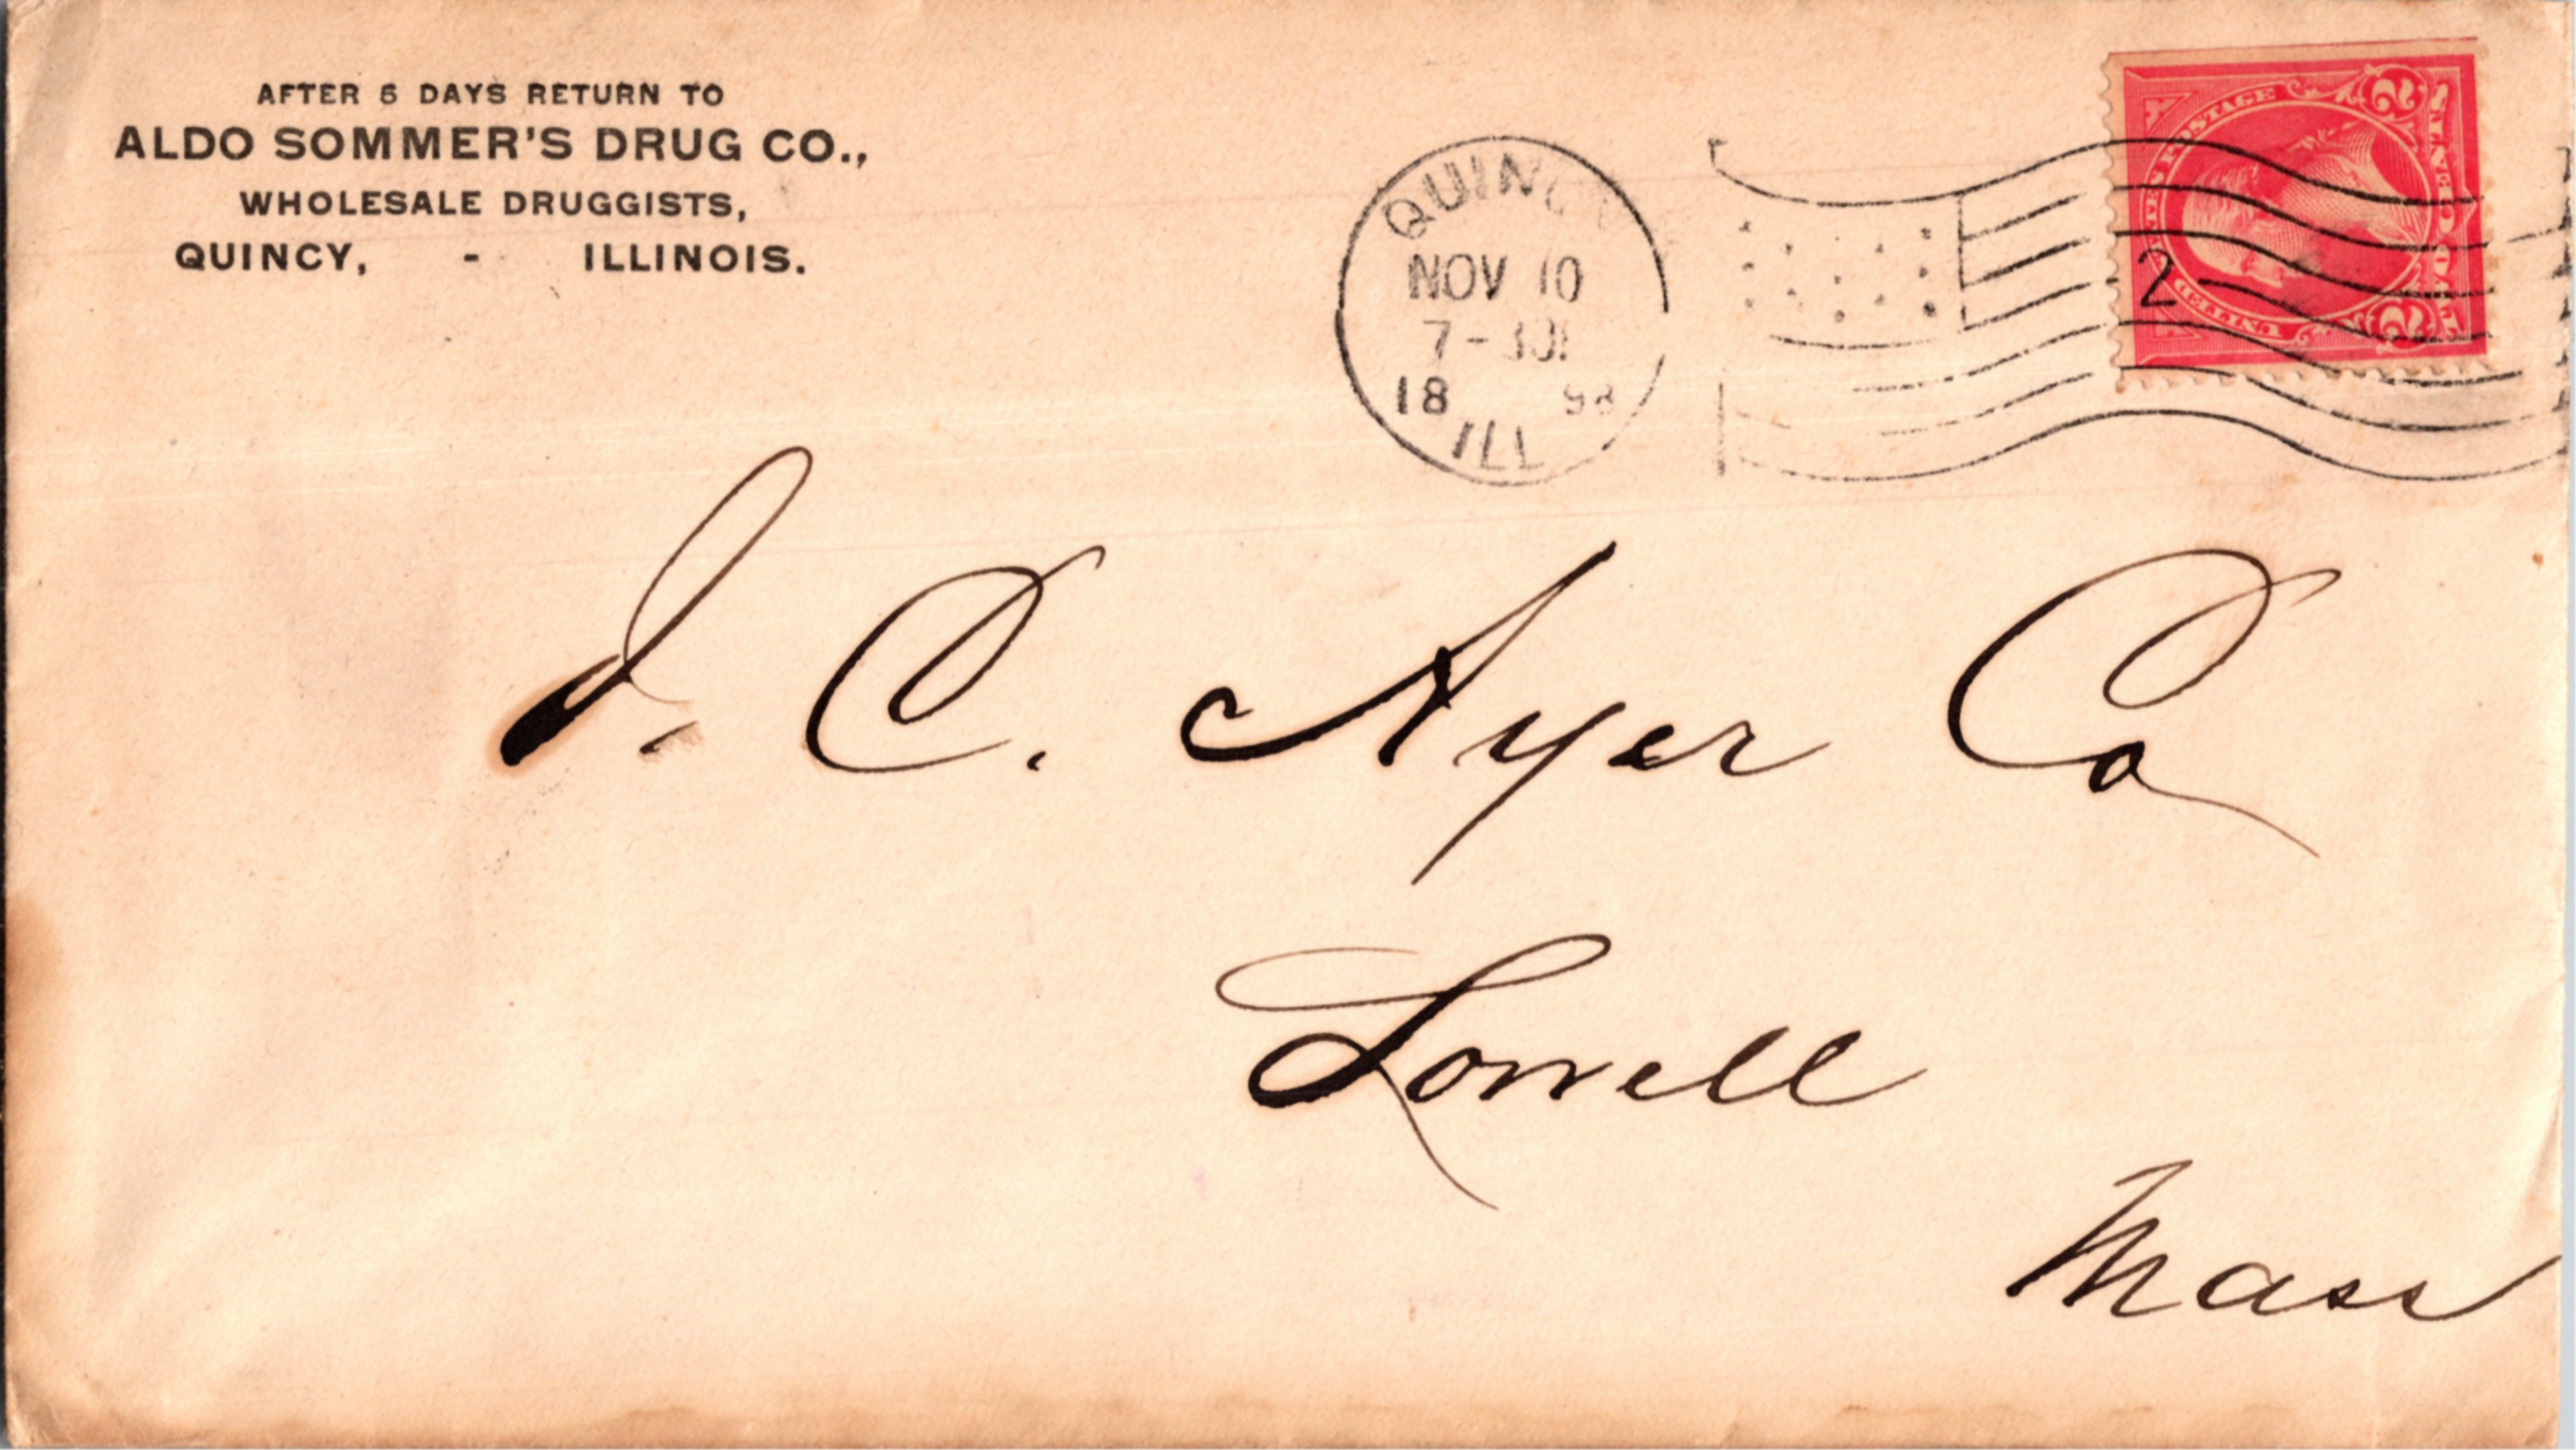 AFTER 5 DAYS RETURN TO
ALDO SOMMER'S DRUG CO.,
WHOLESALE DRUGGISTS,
QUINCY, - ILLINOIS.
QUINCY
NOV 10
7-30
18 98
ILL
2
UNITED STATES POSTAGE
2 TWO CENTS 2
J. C. Ayer Co
Lowell
Mass